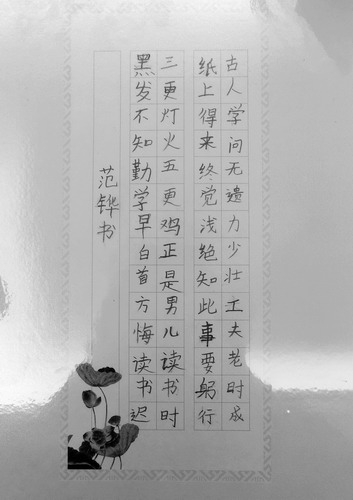 古人学问无遗力少壮工夫老时成
纸上得来终觉浅绝知此事要躬行
三更灯火五更鸡正是男儿读书时
黑发不知勤学早白首方悔读书迟
范铧书